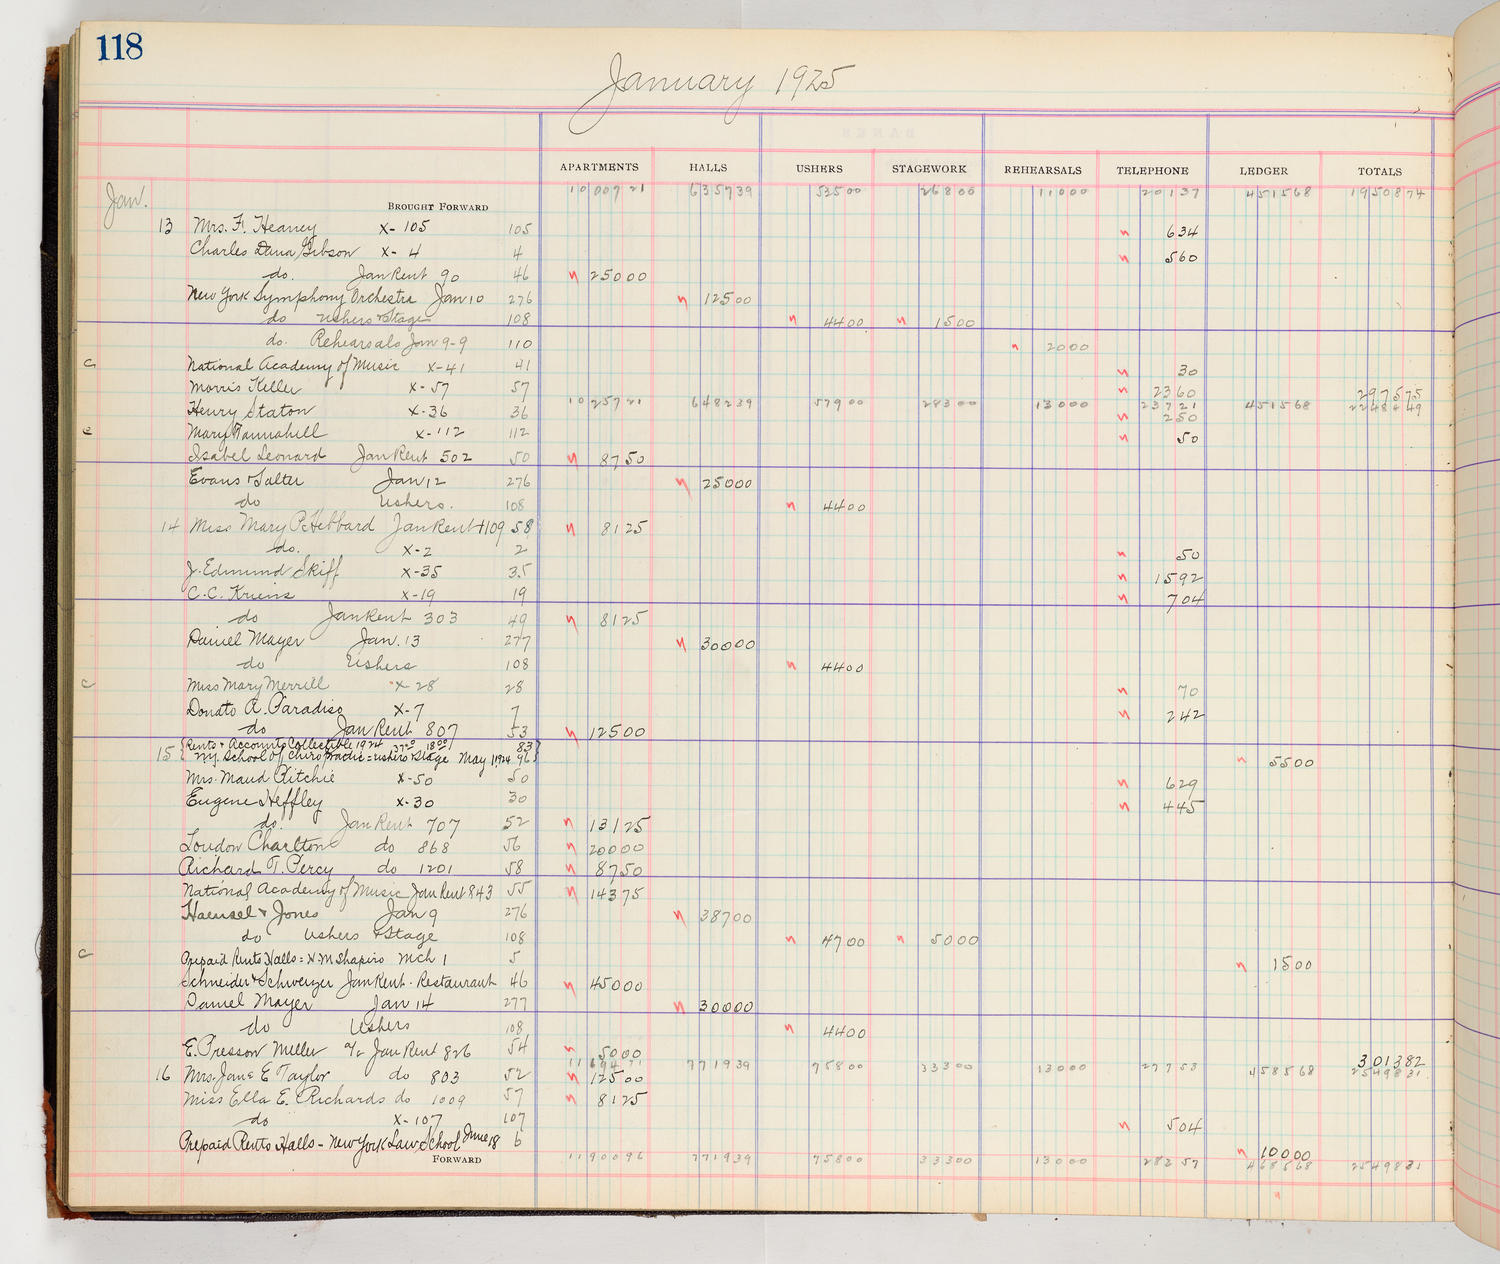 118
January 1925
APARTMENTS HALLS USHERS STAGEWORK REHEARSALS TELEPHONE LEDGER TOTALS
Jan. BROUGHT FORWARD 10009721 635739 53500 26800 11000 20137 451568 1950874
13 Mrs. F. Heaney X-105 105 634
Charles Dana Gibson X-4 4 560
do. Jan Rent 90 46 25000
New York Symphony Orchestra Jan 10 276 12500
do Ushers & Stage 108 4400 1500
do. Rehearsals Jan 9-9 110 2000
c National Academy of Music X-41 41 30
Morris Keller X-57 57 2360 297575
10 25721 648239 57900 28300 13000 23721 451568 2248449
Henry Staton X-36 36 250
c Mary Tannahill X-112 112 50
Isabel Leonard Jan Rent 502 50 8750
Evans & Salter Jan 12 276 25000
do Ushers. 108 4400
14 Miss Mary P. Hebbard Jan Rent 1109 58 8125
do. X-2 2 50
J. Edmund Skiff X-35 35 1592
C.C. X-19 19 704
do Jan Rent 303 49 8125
Daniel Mayer Jan. 13 277 30000
do Ushers 108 4400
c Miss Mary Merrill X-28 28 70
Donato A. Paradiso X-7 7 242
do Jan Rent 807 53 12500
15 Rents & Accounts Collectible 1924 37 00 18 00 83
N.Y. School of Chiropractic = ushers & Stage May 1 1924 96 5500
Mrs. Maud Ritchie X-50 50 629
Eugene Heffley X-30 30 445
do. Jan Rent 707 52 13125
Loudon Charlton do 868 56 20000
Richard T. Percy do 1201 58 8750
National Academy of Music Jan Rent 843 55 14375
Haensel & Jones Jan 9 276 38700
do Ushers & Stage 108 4700 5000
c Prepaid Rents Halls = N.M Shapiro Mch 1 5 1500
Schneider & Schwerzer Jan Rent. Restaurant 46 45000
Daniel Mayer Jan 14 277 30000
do Ushers 108 4400
E. Presson Miller a/c Jan Rent 826 54 5000 301382
771939 75800 33300 13000 27753 458568 2549831
16 Mrs. Jane E Taylor do 803 52 12500
Miss Ella E. Richards do 1009 57 8125
do X-107 107 504
Prepaid Rents Halls - New York Law School June 18 6 10000
FORWARD 1190096 771939 75800 33300 13000 28257 468568 2549831